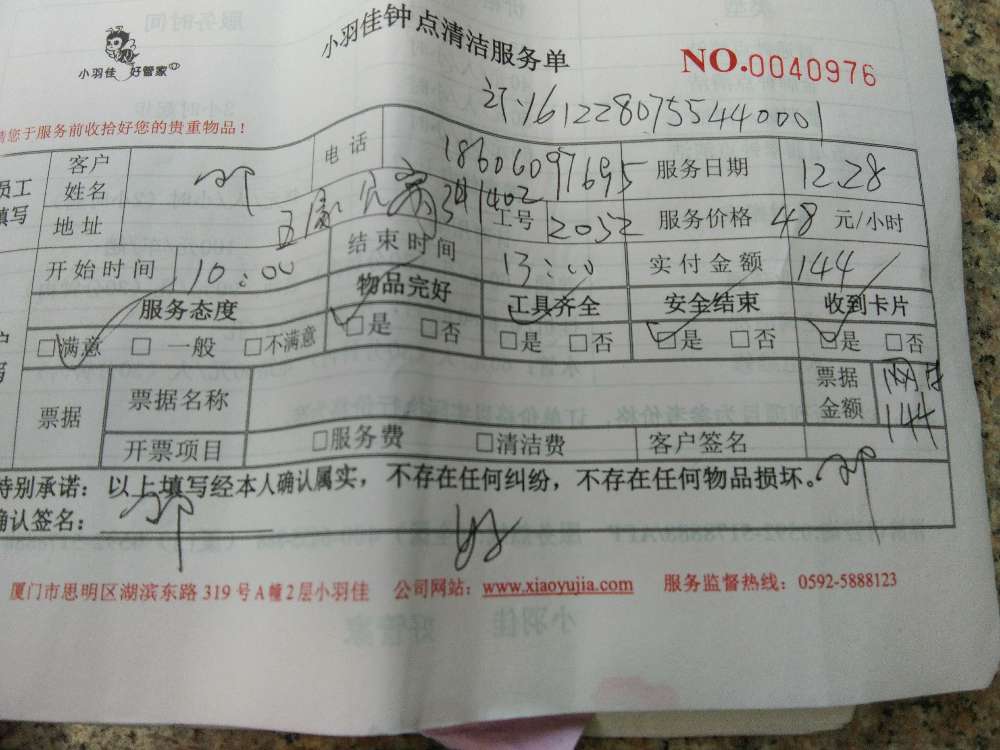 小羽佳 好管家
小羽佳钟点清洁服务单
NO.0040976
161228075544 0001
请您于服务前收拾好您的贵重物品!
员工填写
客户姓名
电话 18606097695
服务日期 12.28
地址 341402
工号 2052
服务价格 48 元/小时
开始时间 10:00
结束时间 13:00
实付金额 144
服务态度 物品完好 工具齐全 安全结束 收到卡片
□满意 □一般 □不满意 □是 □否 □是 □否 □是 □否 □是 □否
票据 票据名称 票据金额 144
开票项目 □服务费 □清洁费 客户签名
特别承诺：以上填写经本人确认属实，不存在任何纠纷，不存在任何物品损坏。
确认签名：
厦门市思明区湖滨东路319号A幢2层小羽佳 公司网站：www.xiaoyujia.com 服务监督热线：0592-5888123